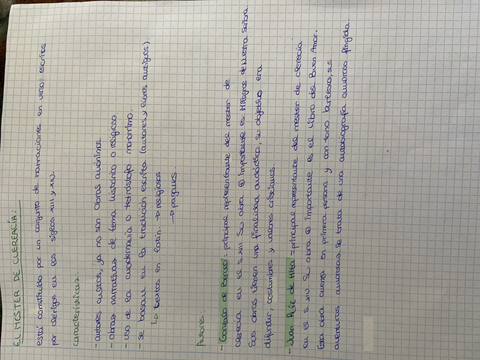 EL MESTER DE CLERECÍA:
está constituido por un conjunto de narraciones en verso escritas
por clérigos en los siglos XIII y XIV.
Características:
- autores cultos, ya no son obras anónimas
- obras narrativas de tema histórico o religioso
- uso de la cuadernavía o tetrástrofo monorrimo.
- se basan en la tradición escrita (autores y libros antiguos)
↳ textos en latín → religiosos
→ paganos
Autores:
- Gonzalo de Berceo: principal representante del mester de
clerecía en el s. XIII. Su obra + importante es Milagros de Nuestra Señora
Sus obras tienen una finalidad didáctica, su objetivo era
difundir, costumbres y valores cristianos.
- Juan Ruiz de Hita = principal representante del mester de clerecía
en el s. XIV. Su obra + importante es el Libro del Buen Amor.
Esta obra cuenta en primera persona y con tono burlesco, sus
aventuras amorosas. Se trata de una autobiografía amorosa fingida